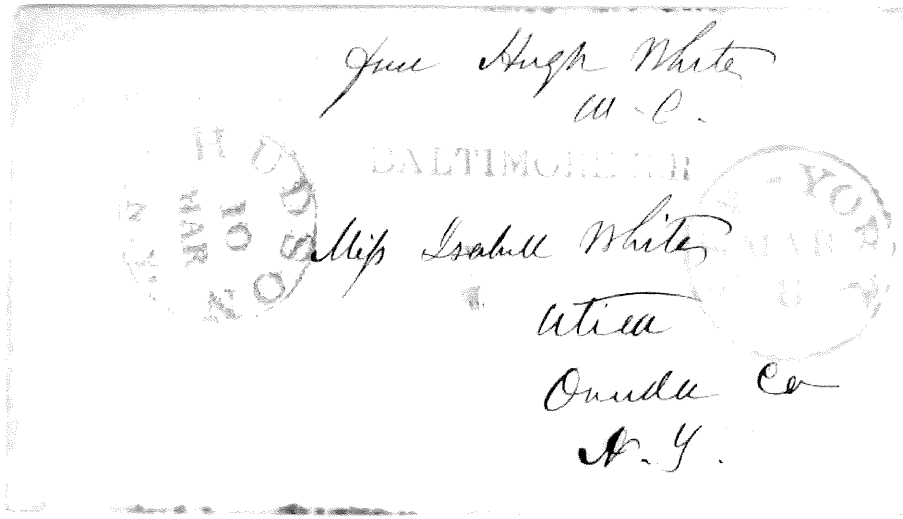 Free Hugh White
M.C.
BALTIMORE R.R
HUDSON N.Y.
10
MAR
NEW-YORK
MAR
8
Miss Isabell White
Utica
Oneida Co
N.Y.